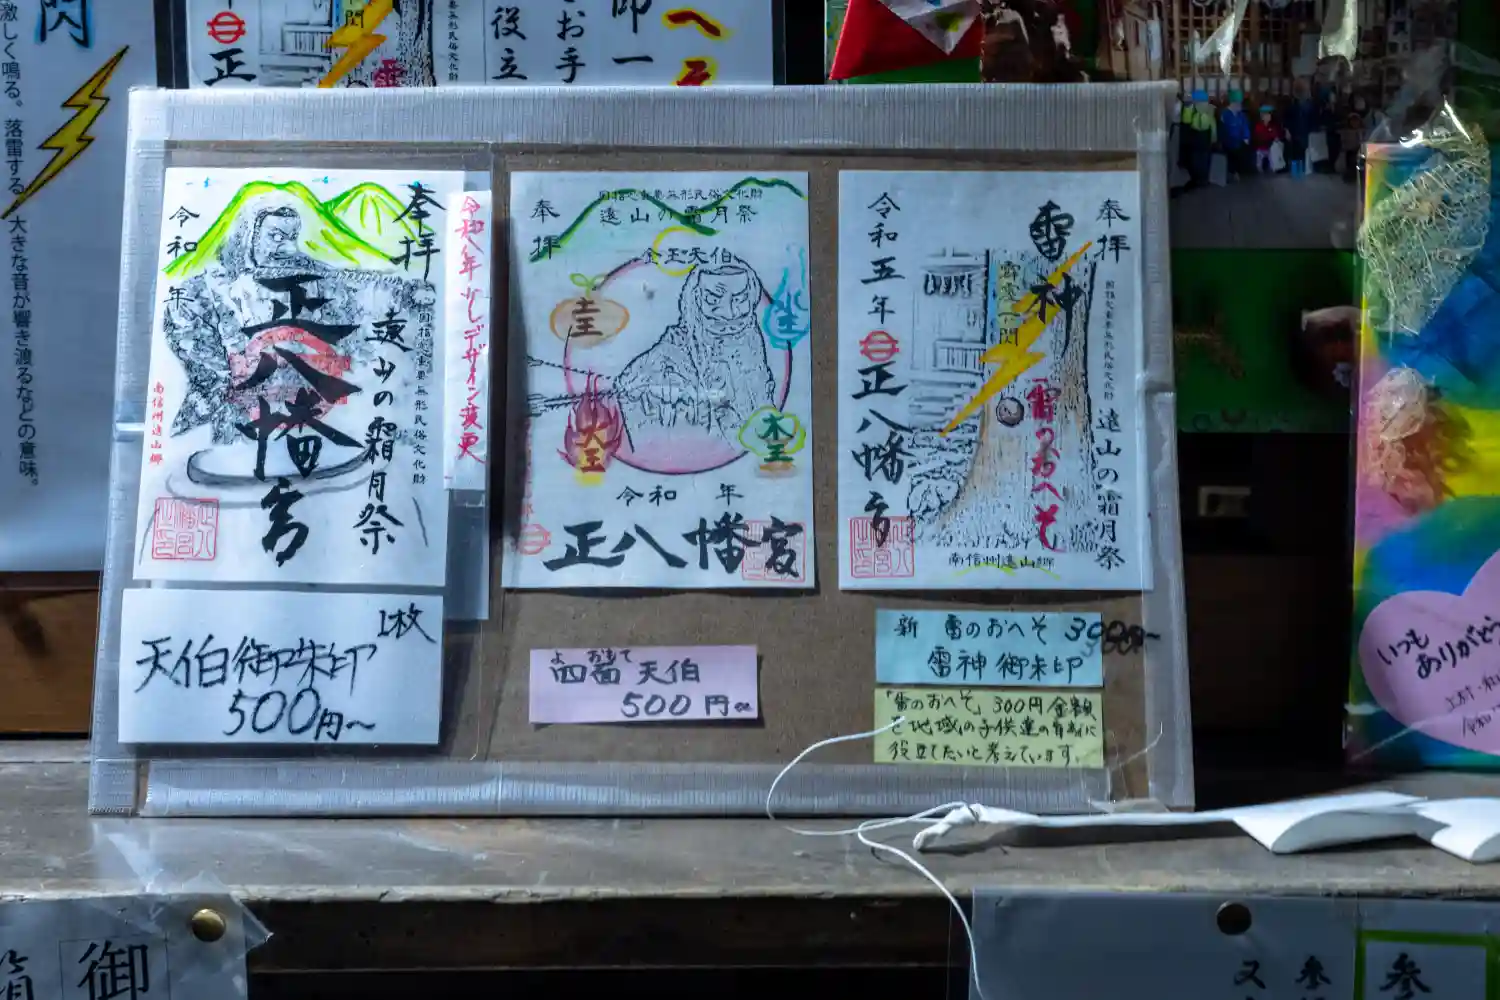 閃
激しく鳴る。落雷する
大きな音が響き渡るなどの意味。
正
閃
役立
お手
印一
へそ
奉拝
令和 年
正八幡宮
遠山の霜月祭
国指定重要無形民俗文化財
南信州遠山郷
令和八年少しデザイン変更
1枚
天伯御朱印
500円〜
奉拝
国指定重要無形民俗文化財
遠山の霜月祭
金王天伯
土王
水王
火王
木王
令和 年
正八幡宮
よ おもて
四面天伯
500円
奉拝
雷神
令和五年
正八幡宮
一閃
雷のおへそ
国指定重要無形民俗文化財
遠山の霜月祭
南信州遠山郷
新 雷のおへそ 300円〜
雷神御朱印
「雷のおへそ」300円全額
を地域の子供達の育成に
役立てたいと考えています。
いつも
ありがとう
御
参
又
参